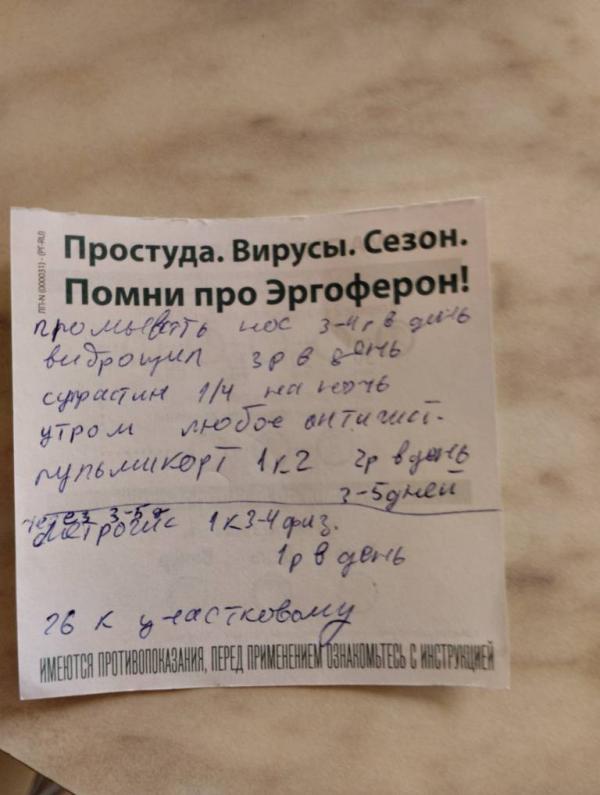 ЛП-N (000031) - (РГ-RU)
Простуда. Вирусы. Сезон.
Помни про Эргоферон!
промывать нос 3-4 р в день
виброцил 3р в день
супрастин 1/4 на ночь
утром любое антигист.
пульмикорт 1к2 2р в день
3-5 дней
через 3-5 д
1к3-4 физ.
1р в день
26 к участковому
ИМЕЮТСЯ ПРОТИВОПОКАЗАНИЯ, ПЕРЕД ПРИМЕНЕНИЕМ ОЗНАКОМЬТЕСЬ С ИНСТРУКЦИЕЙ